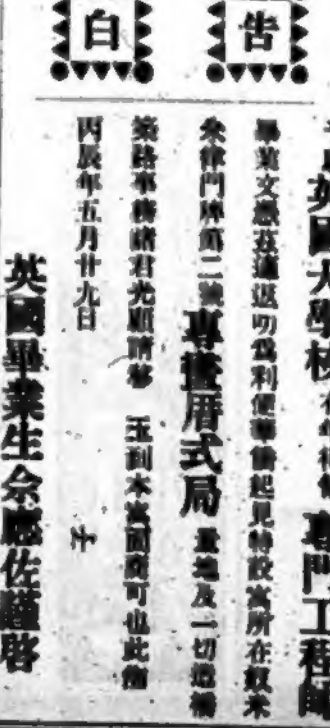 告白
英國大學校 專門工程師
畢業文憑茲適返叻爲利便華僑起見特設寓所在
律門牌第二號專 厝式局 量地及一切造橋
築路事務諸君光顧請移 玉到本寓面商可也此佈
丙辰年五月廿九日
英國畢業生佘應佐謹啓